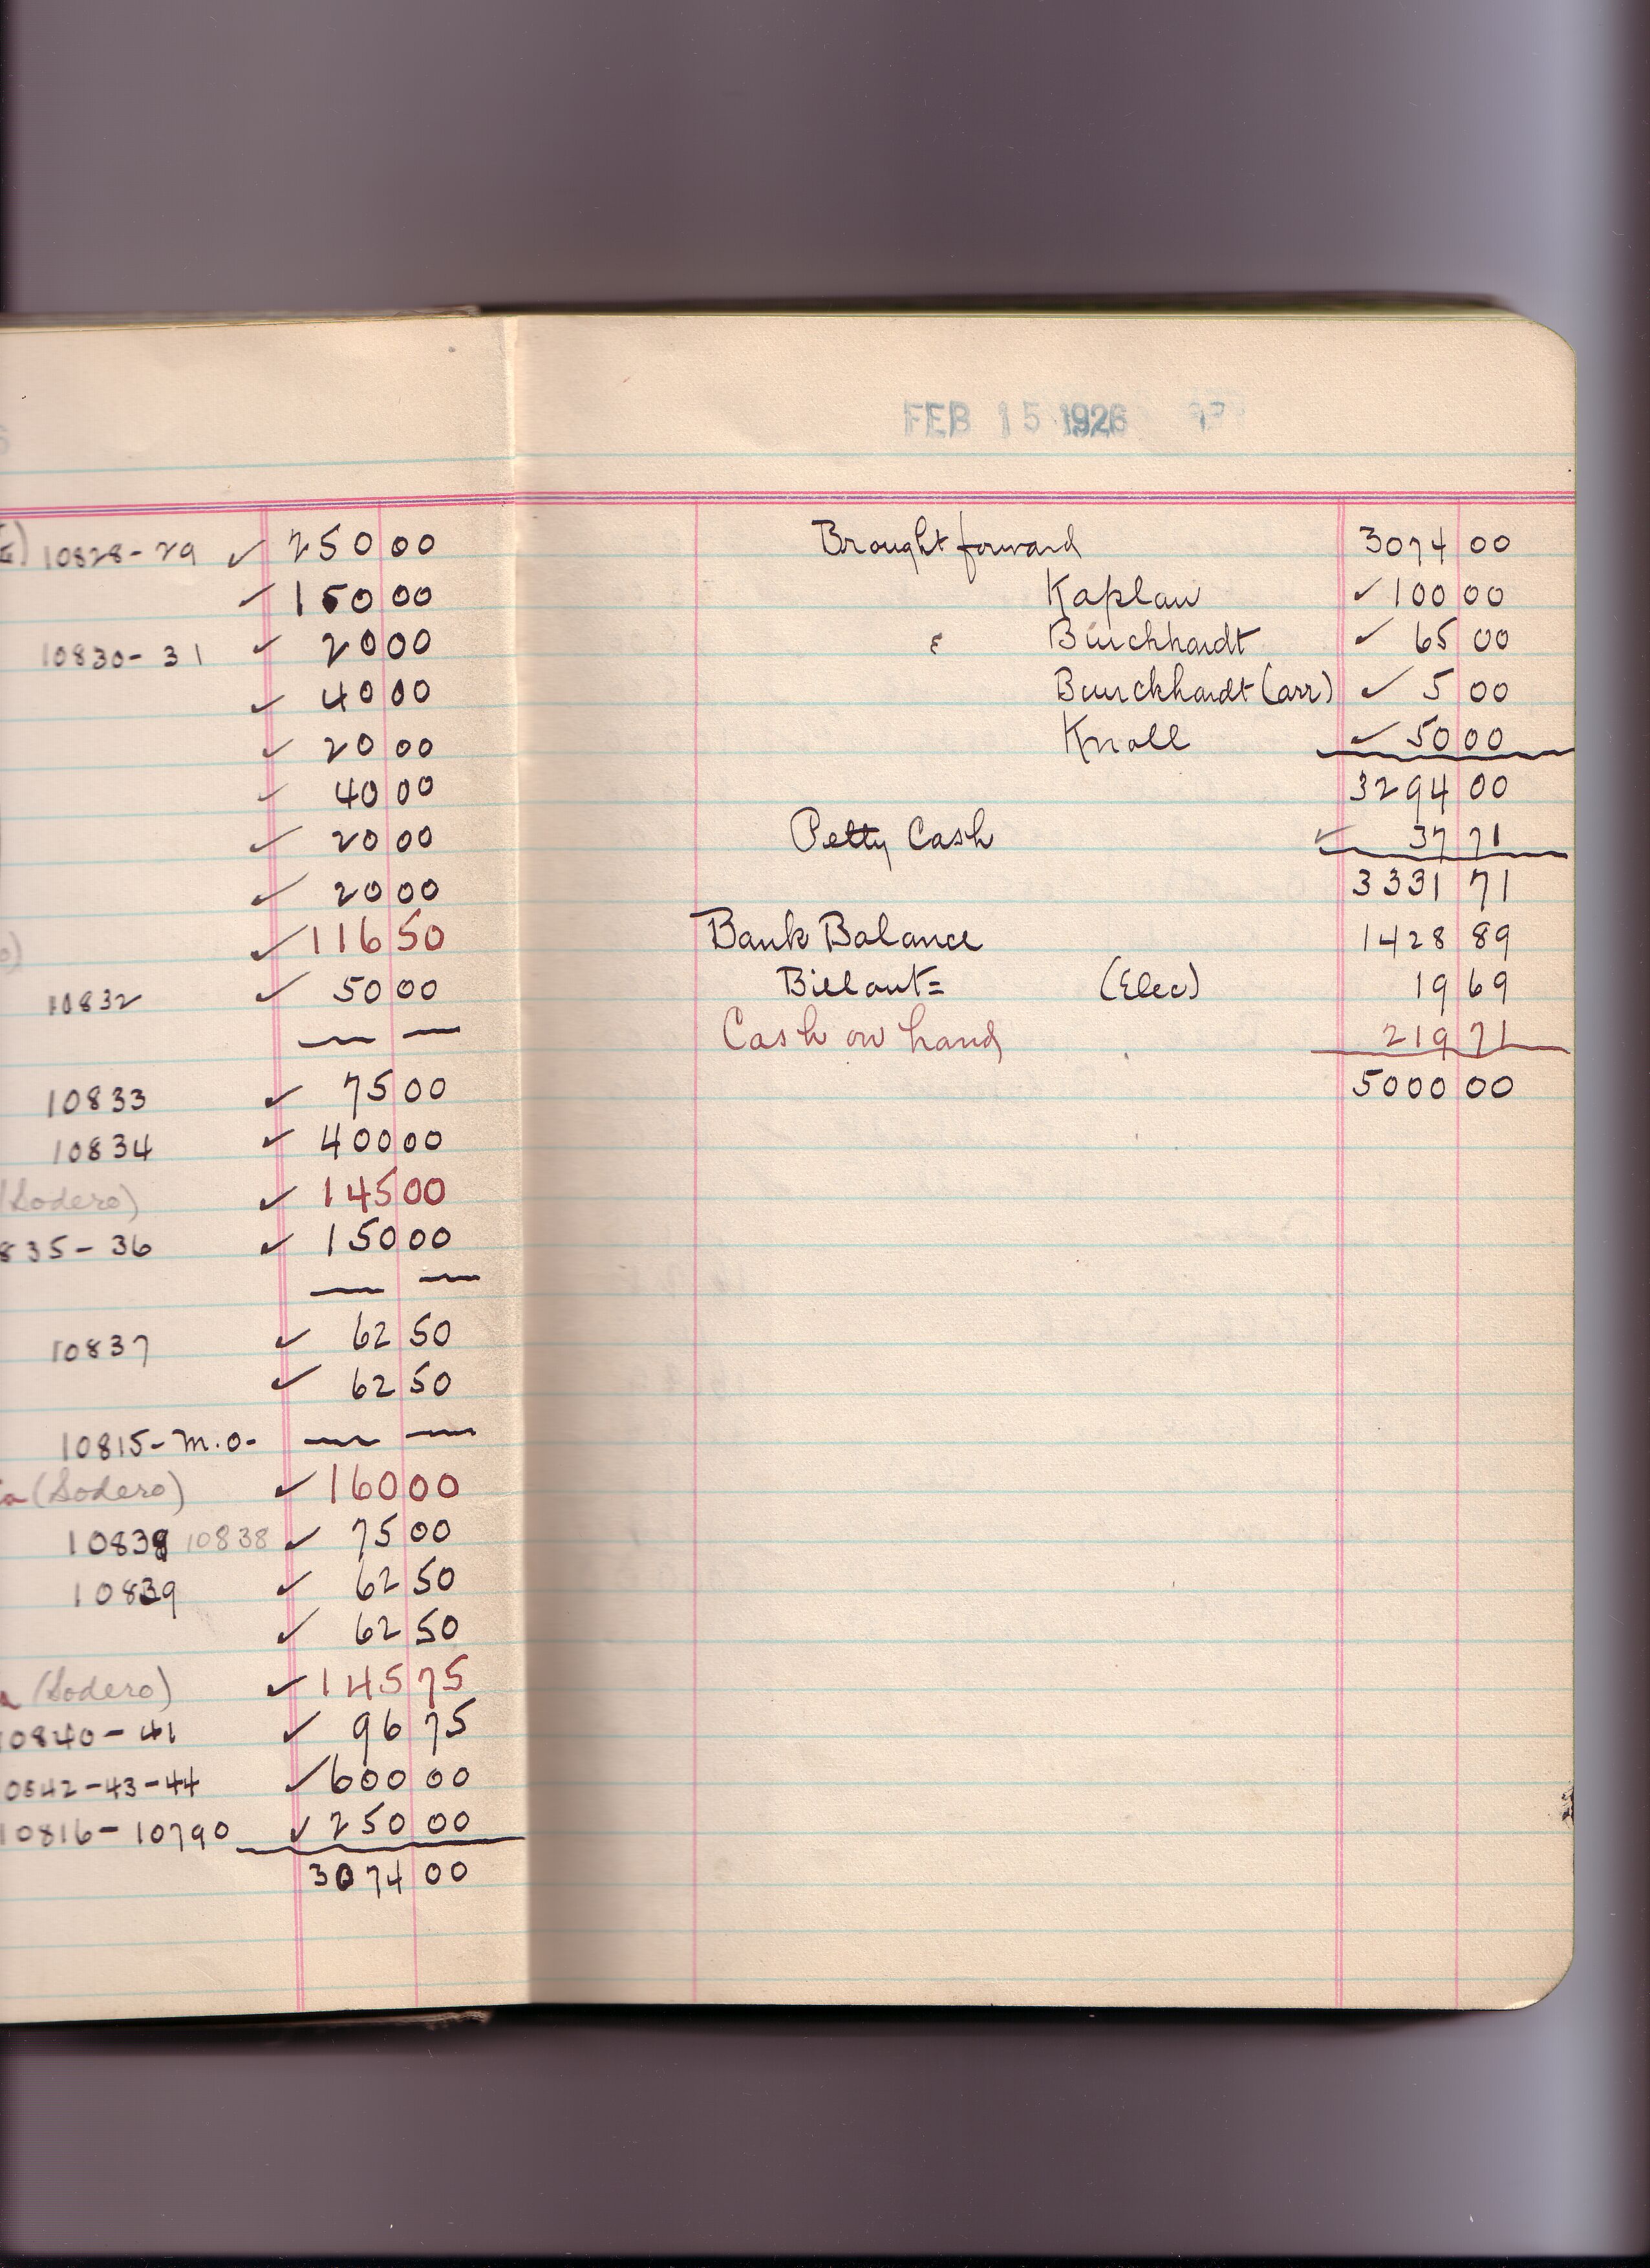 10828-29 ✓ 250 00
✓ 150 00
10830-31 ✓ 20 00
✓ 40 00
✓ 20 00
✓ 40 00
✓ 20 00
✓ 20 00
✓ 116 50
10832 ✓ 50 00
— —
10833 ✓ 75 00
10834 ✓ 400 00
(Sodero) ✓ 145 00
835-36 ✓ 150 00
— —
10837 ✓ 62 50
✓ 62 50
10815-M.O- — —
(Sodero) ✓ 160 00
10838 10838 ✓ 75 00
10839 ✓ 62 50
✓ 62 50
(Sodero) ✓ 145 75
10840-41 ✓ 96 75
0842-43-44 ✓ 600 00
10816-10790 ✓ 250 00
3074 00
FEB 15 1926
Brought forward 3074 00
Kaplan ✓ 100 00
& Burckhardt ✓ 65 00
Burckhardt (arr) ✓ 5 00
Knoll ✓ 50 00
3294 00
Petty Cash ✓ 37 71
3331 71
Bank Balance 1428 89
Bill out= (Elec) 19 69
Cash on hand 219 71
5000 00